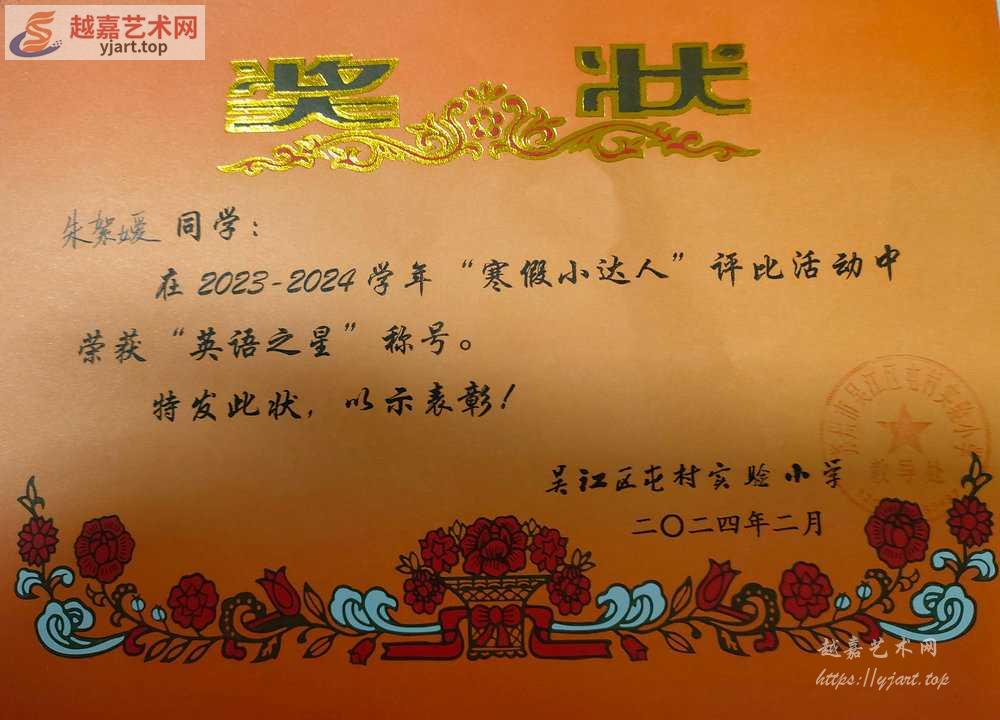 越嘉艺术网
yjart.top
奖状
朱絮媛 同学：
在 2023-2024 学年 “寒假小达人” 评比活动中
荣获 “英语之星” 称号。
特发此状，以示表彰！
苏州市吴江区屯村实验小学
教导处
吴江区屯村实验小学
二〇二四年二月
越嘉艺术网
https://yjart.top